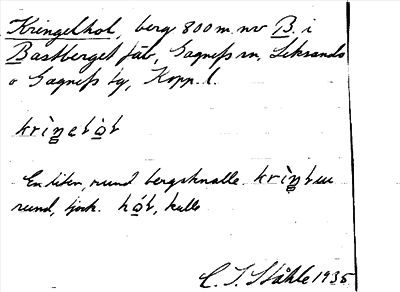 Kringelhol, berg 800 m. nv B. i
Bastberget fäb, Gagnefs sn, Leksands
o Gagnefs tg, Kopp. l.
krìŋelòl
En liten, rund bergsknalle. krìŋlu
rund, tjock. hól, kulle
C. I. Ståhle 1935